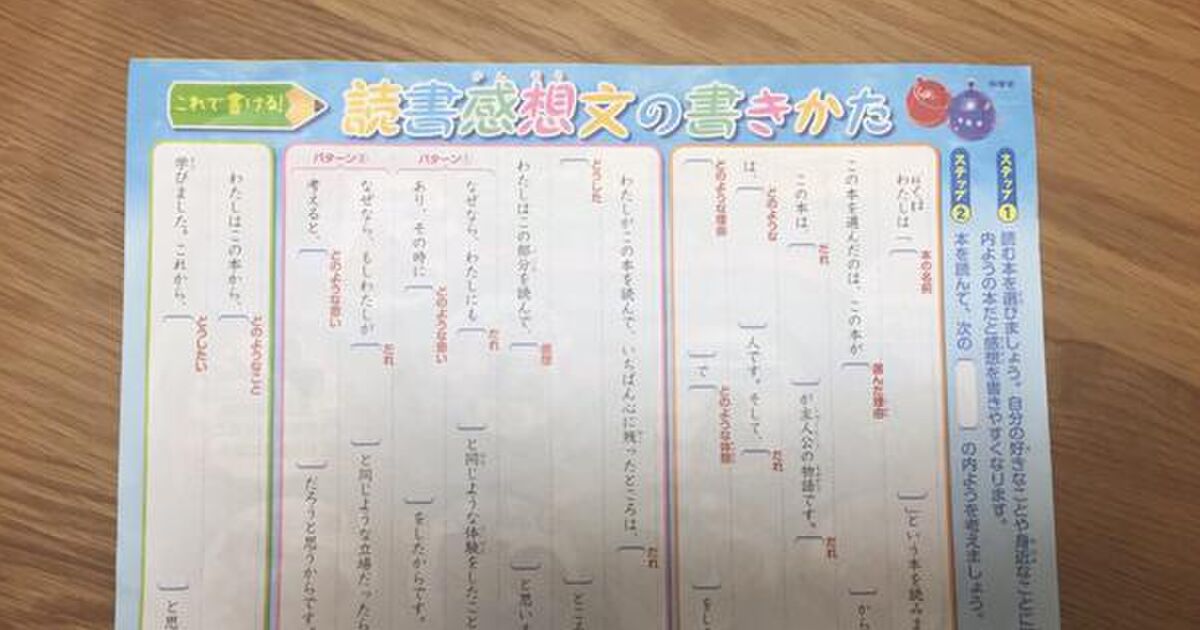 これで書ける!
読書感想文の書きかた
ステップ1
読む本を選びましょう。自分の好きなことや身近なことに
内ようの本だと感想を書きやすくなります。
ステップ2
本を読んで、次の
の内ようを考えましょう。
ぼくは
わたしは「
本の名前
」という本を読みま
この本を選んだのは、この本が
選んだ理由
から
この本は、
だれ
が主人公の物語です。
だれ
は
どのような
人です。そして、
だれ
どのような理由
で
どのような体験
をし
わたしがこの本を読んで、いちばん心に残ったところは、
だれ
どうした
とこ
わたしはこの部分を読んで、
感想
と思い
パターン①
なぜなら、わたしにも
だれ
と同じような体験をしたこと
あり、その時に
どのような思い
をしたからです。
パターン②
なぜなら、もしわたしが
だれ
と同じような立場だったら
考えると、
どのような思い
だろうと思うからです。
わたしはこの本から、
どのようなこと
学びました。これから、
どうしたい
と思